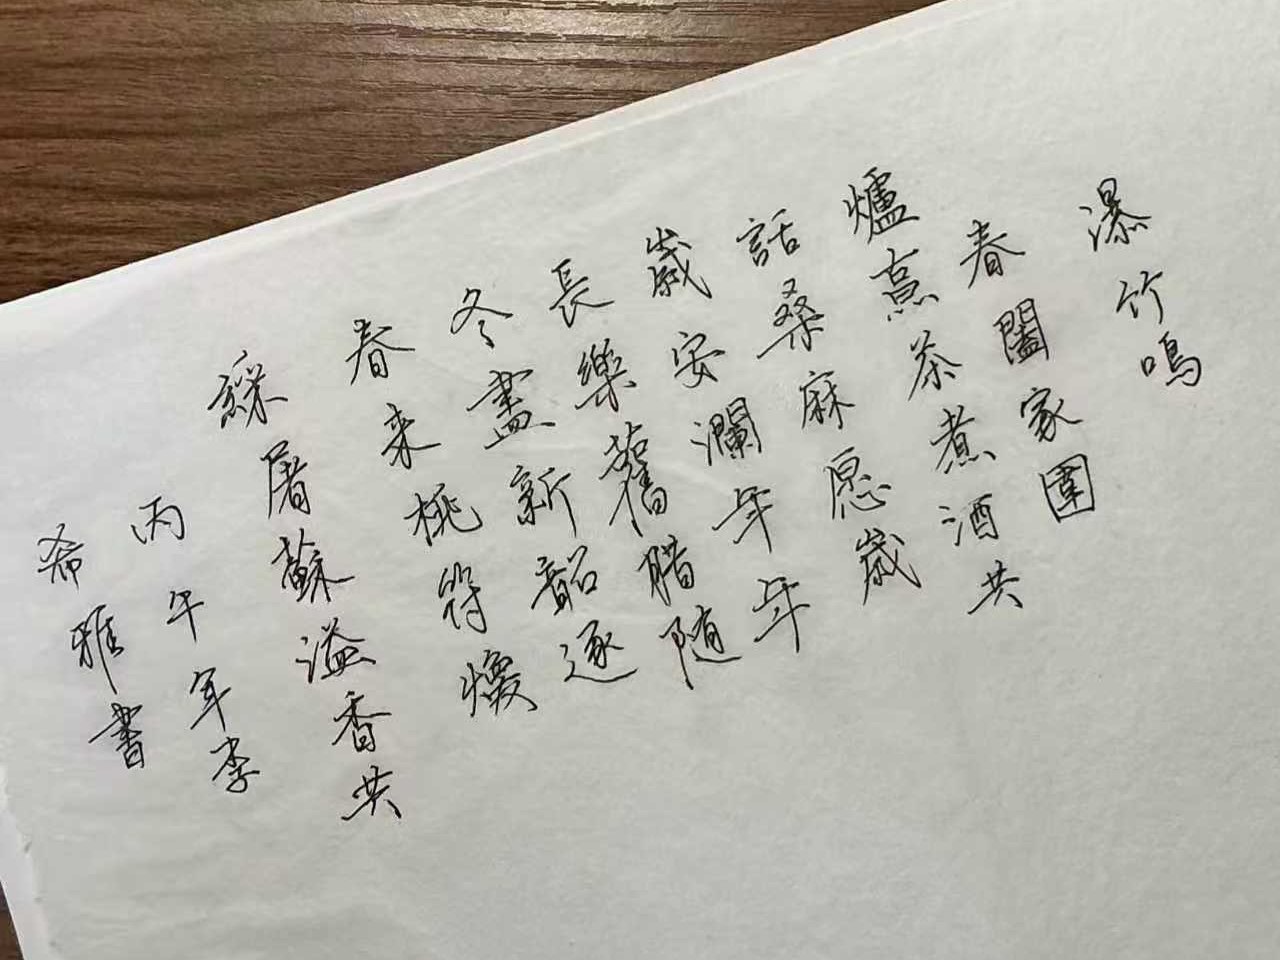 瀑竹鳴
春闔家圍
爐烹茶煮酒共
話桑麻愿歲
歲安瀾年年
長樂舊腊随
冬盡新韶逐
春来桃符煥
綵屠蘇溢香共
丙午年李
希雅書